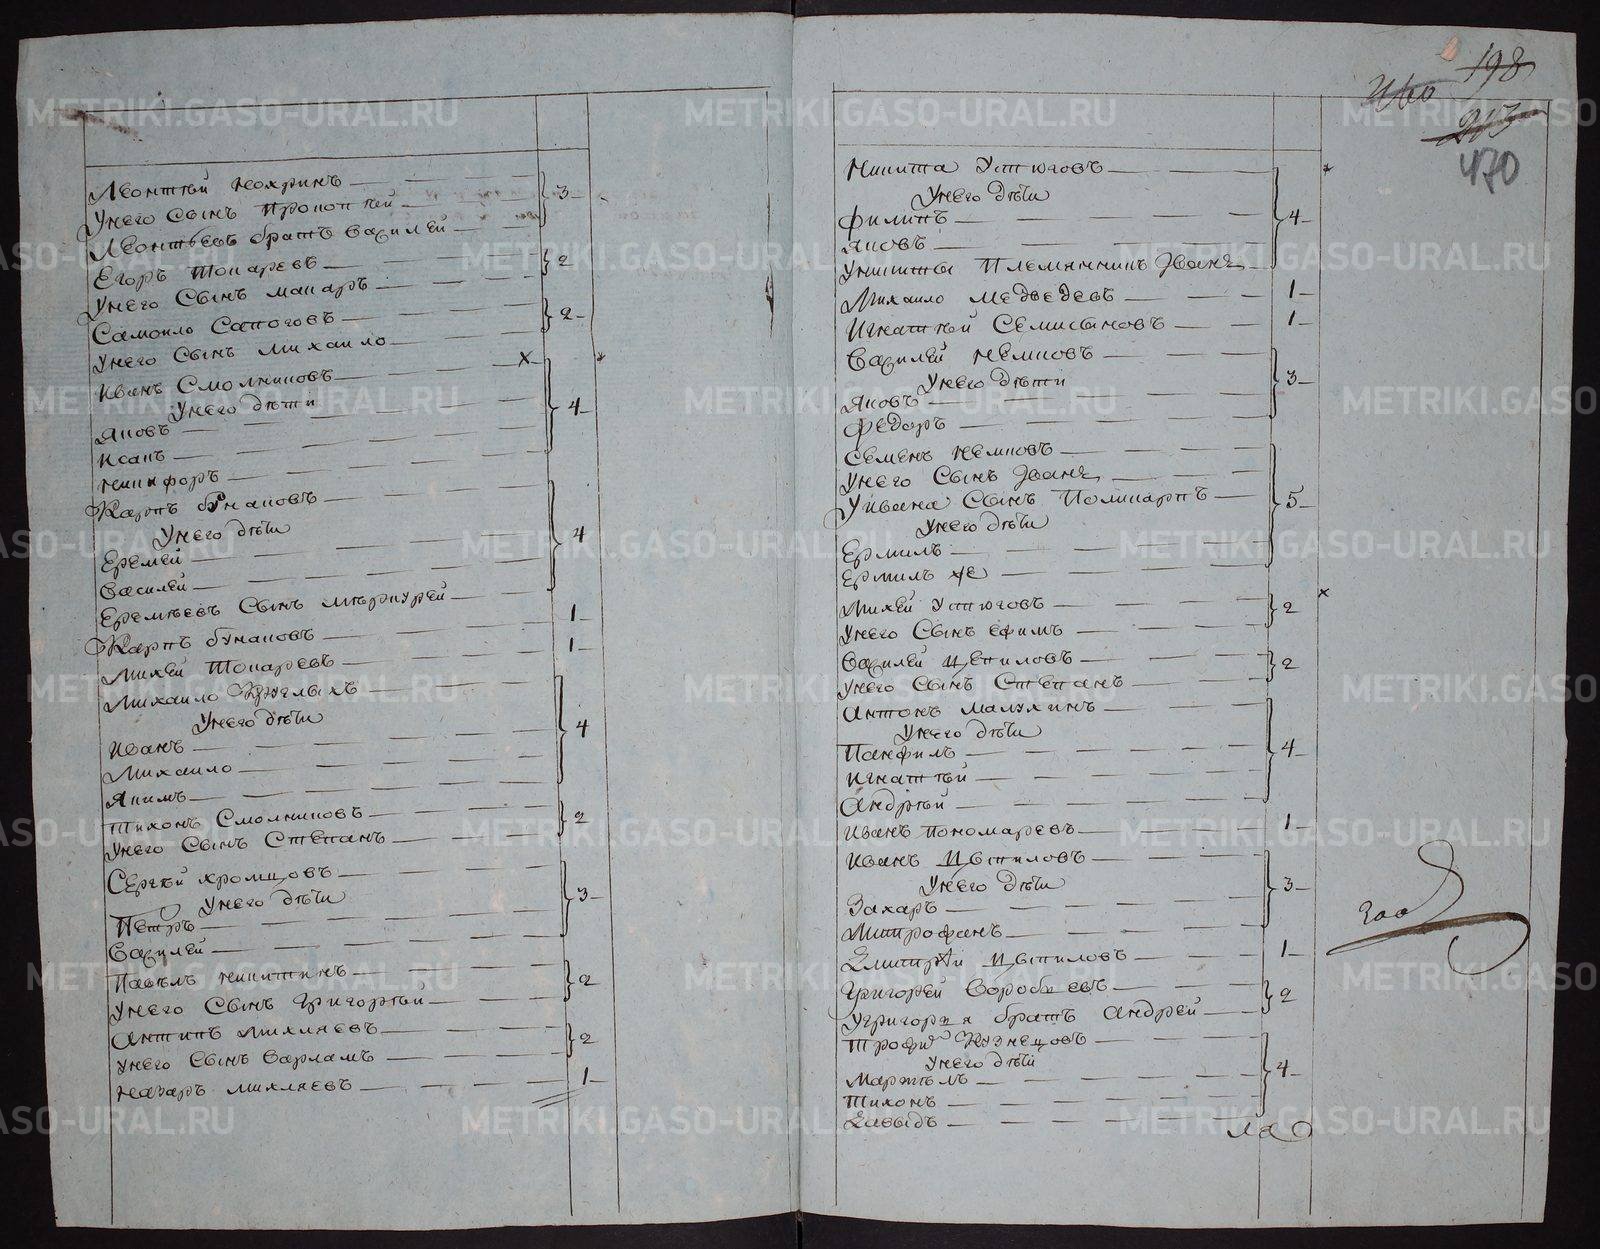 Леонтьй Кокринъ 3
Унего Сынъ Прокопьй
Леонтьевъ братъ Василей
Егоръ Токаревъ 2
Унего Сынъ макаръ
Самоило Сапоговъ 2
Унего Сынъ Михаило
Иванъ Смолниковъ х 4
Унего дѣти
Яковъ
Исакъ
никифоръ
Карпъ бунаковъ 4
Унего дѣти
Еремѣй
Василѣй
Еремѣевъ Сынъ мѣркурей
Карпъ бунаковъ 1
Михѣй Токаревъ 1
Михаило Круглыхъ 4
Унего дѣти
Иванъ
Михаило
Якимъ
Тихонъ Смолниковъ 2
Унего Сынъ Степанъ
Сергѣй хромцовъ 3
Унего дѣти
Петръ
Василей
Павѣлъ никитинъ 2
Унего Сынъ Григорьй
Антипъ Михляевъ 2
Унего Сынъ Варламъ
назаръ михляевъ 1
198
213
470
Никита Устюговъ 4
Унего дѣти
Филипъ
Яковъ
Уникиты Племянникъ Иванъ
Михаило Медведевъ 1
Игнатьй Семисыновъ 1
Василей Немковъ 3
Унего дѣти
Яковъ
Федоръ
Семенъ Немковъ 5
Унего Сынъ Иванъ
Уивана Сынъ Поликарпъ
Унего дѣти
Ермилъ
Ермилъ же
Михѣй Устюговъ 2
Унего Сынъ ефимъ
Василей Цепиловъ 2
Унего Сынъ Степанъ
Антонъ малухинъ 4
Унего дѣти
Панфилъ
Игнатьй
Андрѣй
Иванъ Пономаревъ 1
Иванъ Цепиловъ 3
Унего дѣти
Захаръ
Митрофанъ
Дмитрѣй Цепиловъ 1
Григорей Воробьевъ 2
Угригорья братъ Андрей
Трофимъ Кузнецовъ 4
Унего дѣти
Мартелъ
Тихонъ
Давыдъ